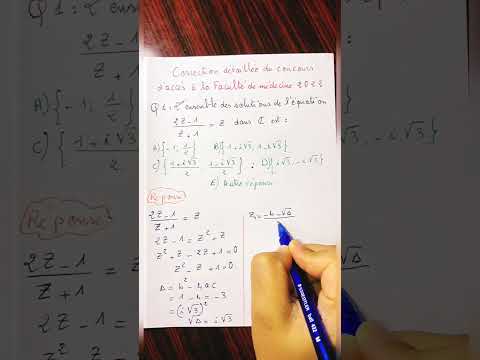 Correction détaillée du concours
d'accès à la Faculté de médecine 2023
Q1: L'ensemble des solutions de l'équation
(2Z-1)/(Z+1) = Z dans ℂ est:
A) {-1; 1/2} B) {1+i√3, 1-i√3}
C) {(1+i√3)/2, (1-i√3)/2}; D) {i√3, -i√3}
E) Autre réponse
Réponse
(2Z-1)/(Z+1) = Z
2Z-1 = Z²+Z
Z²+Z-2Z+1=0
Z²-Z+1=0
Δ = b²-4ac
= 1-4 = -3
= (i√3)²
√Δ = i√3
Z₁ = -b-√Δ
STAEDTLER Ball 432 M